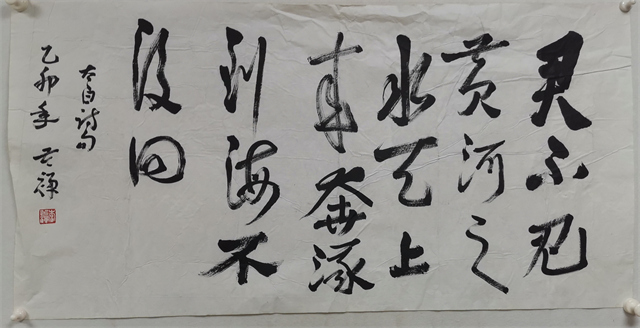 君不見
黄河之
水天上
来奔流
到海不
復回
太白诗句
乙卯年